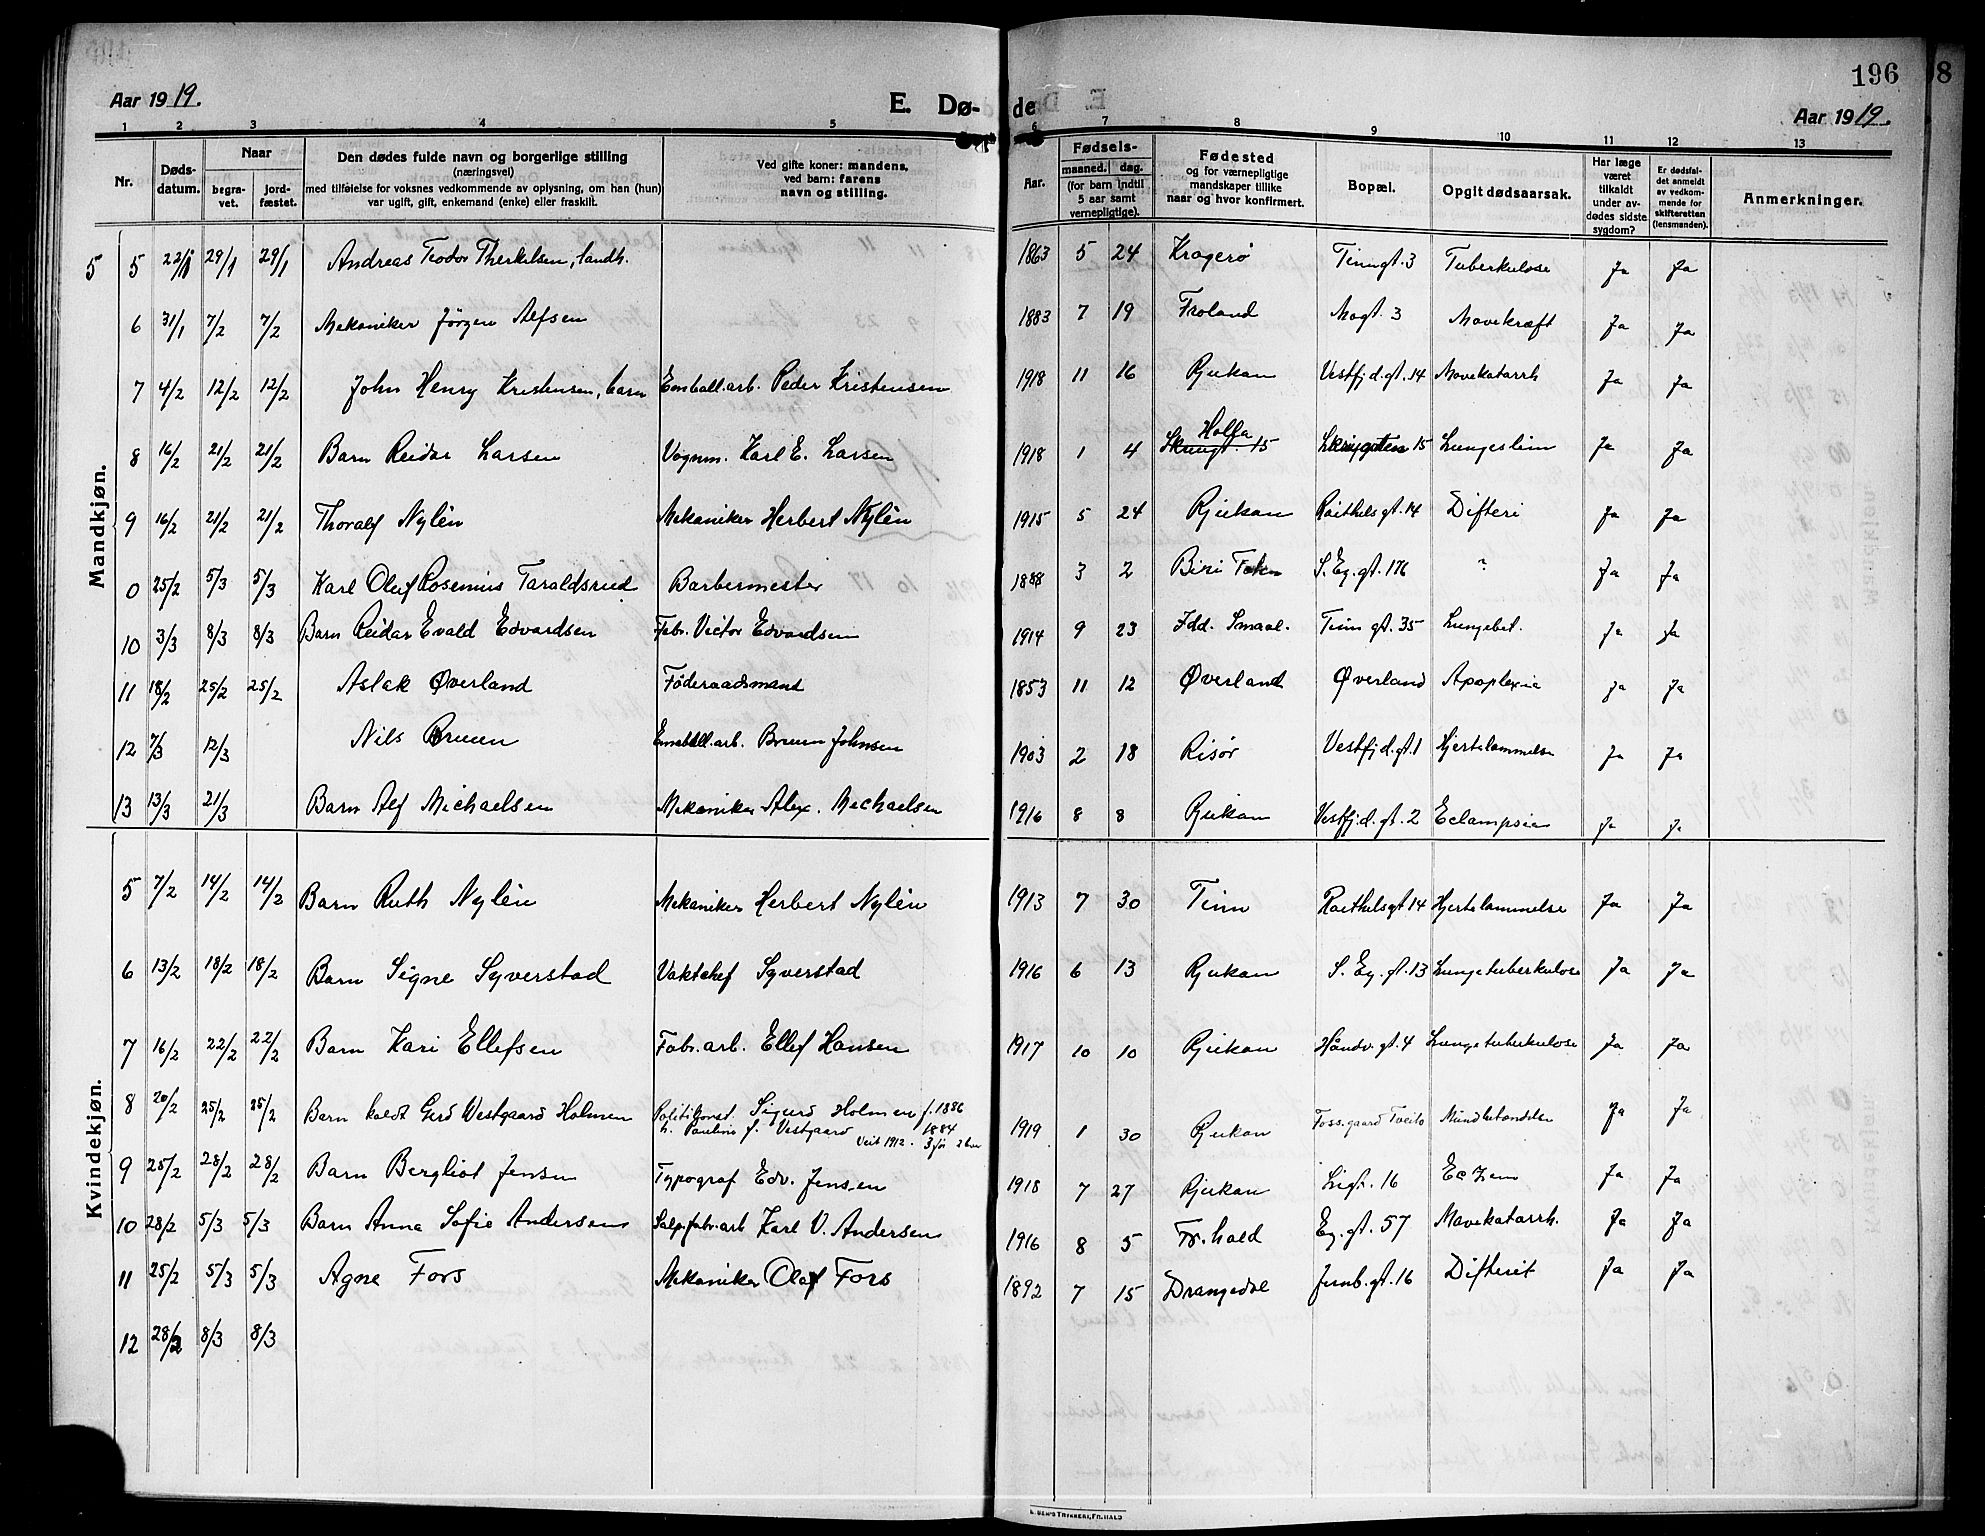 196
8
Aar 1919.
E. Dø-
de
Aar 1919.
1 2 3 4 5 6 7 8 9 10 11 12 13
Nr.
Døds-
datum.
Naar
begra-
vet.
jord-
fæstet.
Den dødes fulde navn og borgerlige stilling
(næringsvei)
med tilføielse for voksnes vedkommende av oplysning, om han (hun)
var ugift, gift, enkemand (enke) eller fraskilt.
Ved gifte koner: mandens,
ved barn: farens
navn og stilling.
Aar.
Fødsels-
maaned. dag.
(for barn indtil
5 aar samt
vernepligtige).
Fødested
og for værnepligtige
mandskaper tillike
naar og hvor konfirmert.
Bopæl.
Opgit dødsaarsak.
Har læge
været
tilkaldt
under av-
dødes sidste
sygdom?
Er dødsfal-
det anmeldt
av vedkom-
mende for
skifteretten
(lensmanden).
Anmerkninger.
Mandkjøn.
5 5 22/1 29/1 29/1 Andreas Teodor Therkelsen, landh. 1863 5 24 Kragerø Tinngt. 3 Tuberkulose Ja Ja
6 31/1 7/2 7/2 Mekaniker Jörgen Alfsen 1883 7 19 Froland Mogt. 3 Mavekræft Ja Ja
7 4/2 12/2 12/2 John Henry Kristensen, barn Emball.arb. Peder Kristensen 1918 11 16 Rjukan Vestfjd.gt. 14 Mavekatarrh Ja Ja
8 16/2 21/2 21/2 Barn Reidar Larsen Vognm. Karl E. Larsen 1918 1 4 Holla Skriugt. 15 15 Lungeslim Ja Ja
9 16/2 21/2 21/2 Thoralf Nylén Mekaniker Herbert Nylén 1915 5 24 Rjukan Roithels gt. 14 Difteri Ja Ja
0 25/2 5/3 5/3 Karl Oluf Rosenius Taraldsrud Barbermester 1888 3 2 Biri S. Eg. gt. 176 ? Ja Ja
10 3/3 8/3 8/3 Barn Reidar Evald Edvardsen Fabr. Victor Edvardsen 1914 9 23 Idd. Smaal. Tinn gt. 35 Lungebet. Ja Ja
11 18/2 25/2 25/2 Aslak Øverland Föderaadsmand 1853 11 12 Øverland Øverland Apoplexia Ja Ja
12 7/3 12/3 Nils Bruun Emball.arb. Bruun Johnsen 1903 2 18 Risör Vestfjd.gt. 1 Hjertelammelse Ja Ja
13 13/3 21/3 Barn Alf Michaelsen Mekaniker Alex. Michaelsen 1916 8 8 Rjukan Vestfjd.gt. 2 Eclampsia Ja Ja
Kvindekjøn.
5 7/2 14/2 14/2 Barn Ruth Nylén Mekaniker Herbert Nylén 1913 7 30 Tinn Roithelsgt 14 Hjertelammelse Ja Ja
6 13/2 18/2 18/2 Barn Signe Syverstad Vaktchef Syverstad 1916 6 13 Rjukan S. Eg. gt. 13 Lungetuberkulose Ja Ja
7 16/2 22/2 22/2 Barn Kari Ellefsen Fabr.arb. Ellef Hansen 1917 10 10 Rjukan Håndv.gt. 4 Lungetuberkulose Ja Ja
8 20/2 25/2 25/2 Barn kaldt Gerd Westgaard Holmen Politikonst. Sigurd Holmen f. 1886
h. Pauline f. Vestgaard 1884
Veit 1912. 3 før 2 lever
1919 1 30 Rjukan Fossgaard Tveito Ja Ja
9 25/2 28/2 28/2 Barn Bergliot Jensen Typograf Edv. Jensen 1918 7 27 Rjukan Ligt. 16 Eczem Ja Ja
10 28/2 5/3 5/3 Barn Anna Sofie Andersen Salp.fabr.arb Karl V. Andersen 1916 8 5 Fr. hald Eg. gt. 57 Mavekatarrh. Ja Ja
11 25/2 5/3 5/3 Agne Fors Mekaniker Olaf Fors 1892 7 15 Drangedal Jernb.gt. 16 Difterit Ja Ja
12 28/2 8/3 8/3
TRYKKERI, FR.HALD